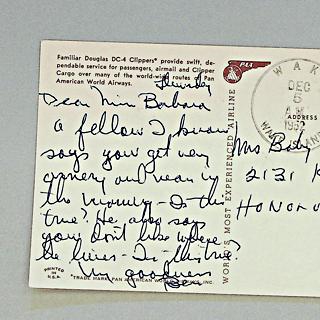 Familiar Douglas DC-4 Clippers* provide swift, de-
pendable service for passengers, airmail and Clipper
Cargo over many of the world-wide routes of Pan
American World Airways.
Thursday
Dear Miss Barbara
A fellow I know
says you get very
ornery and mean in
the morning - Is this
true? He also says
you don't like where
he lives - Is this true?
My goodness
PRINTED IN
U.S.A.
*TRADE MARK, PAN AMERICAN WORLD AIRWAYS, INC.
WORLD'S MOST EXPERIENCED AIRLINE
PAA
WAK
DEC
5
1952
ADDRESS
2131 K
HONOLU